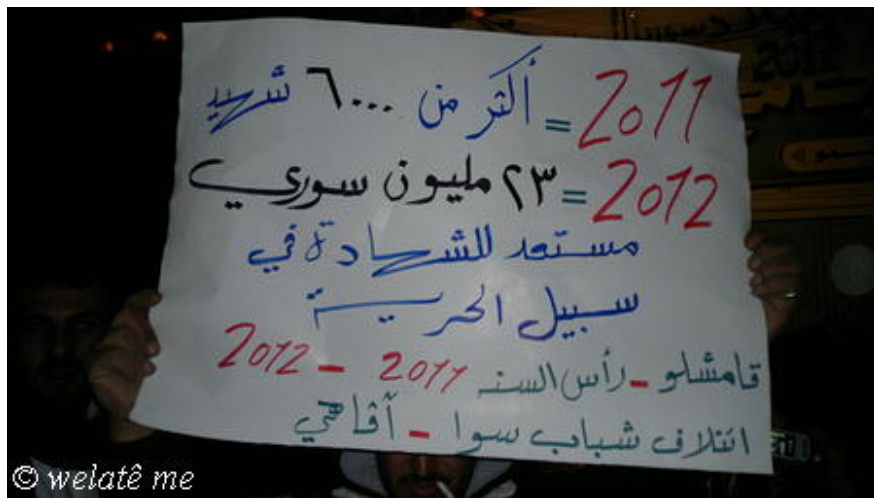 2011 = أكثر من ٦٠٠٠ شهيد
2012 = ٢٣ مليون سوري
مستعد للشهادة في
سبيل الحرية
قامشلو - رأس السنه 2011 - 2012
ائتلاف شباب سوا - آڤاهي
© welatê me